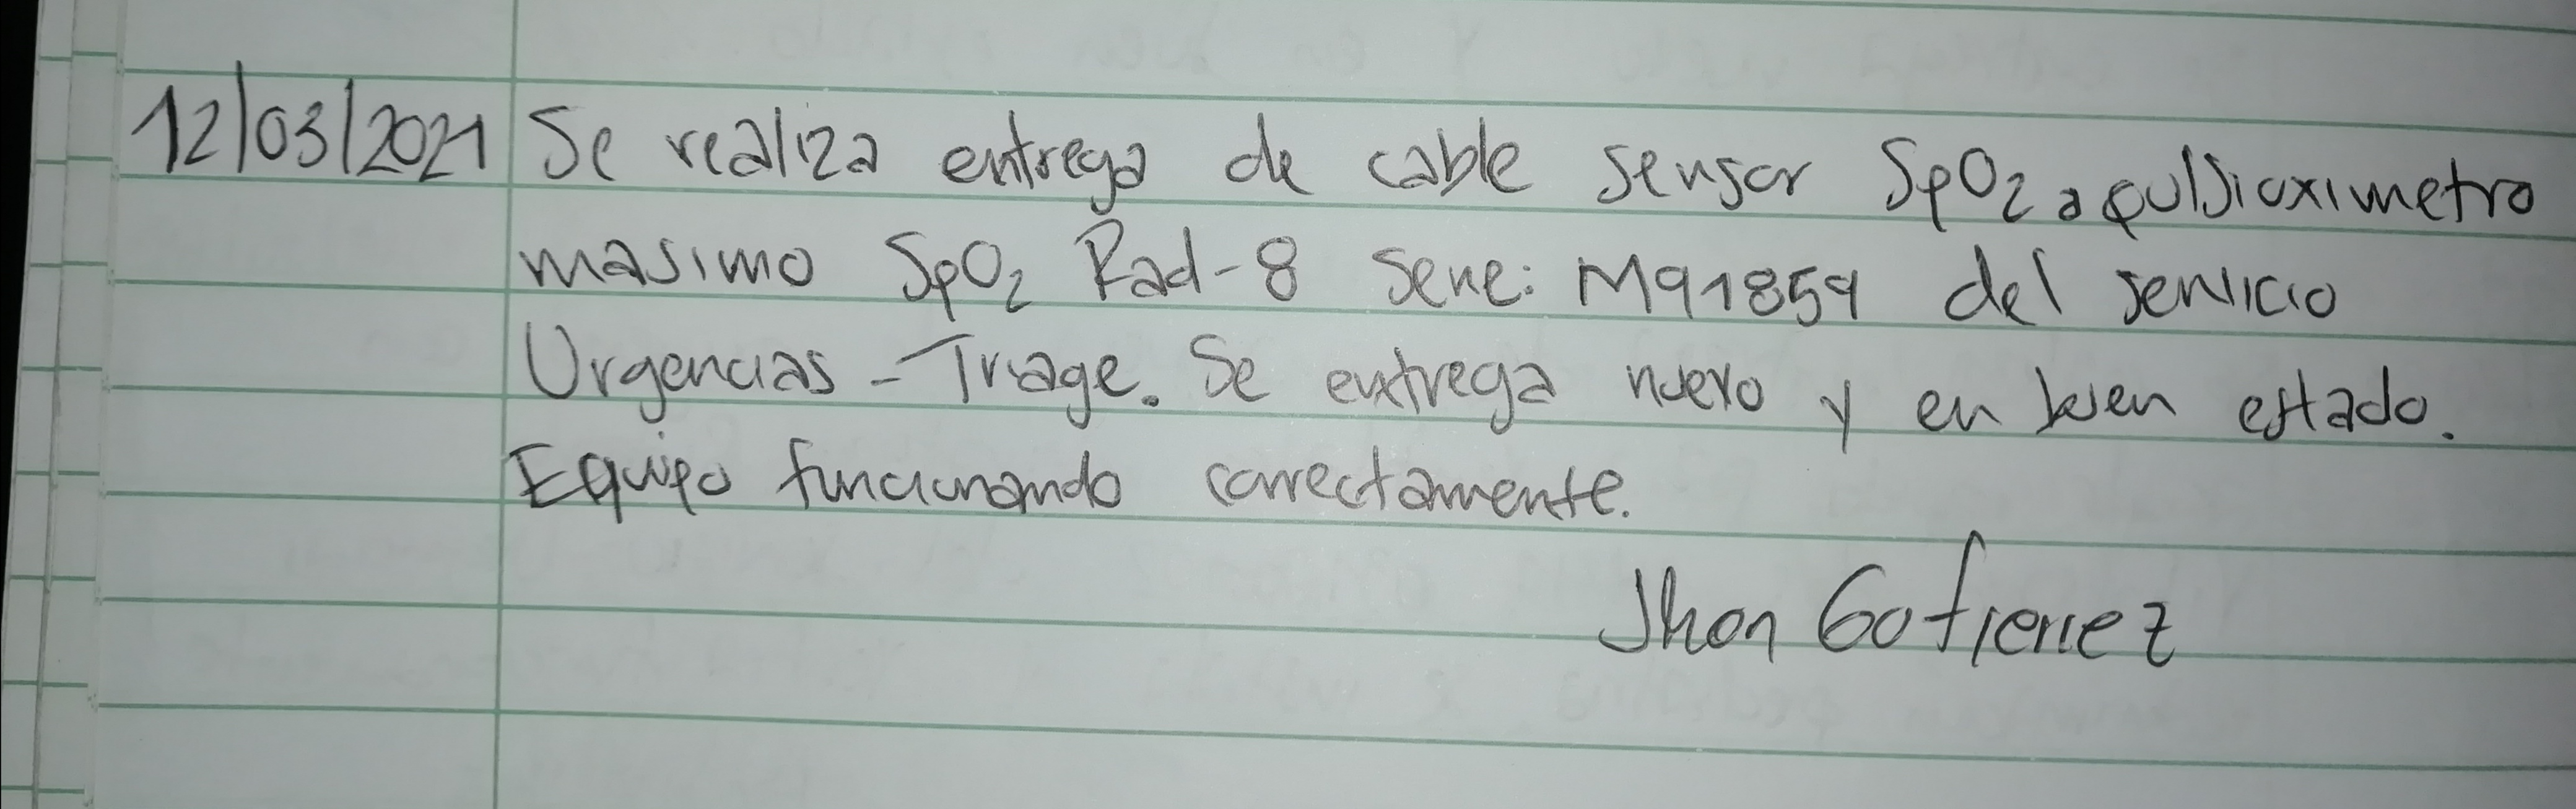 12/03/2021 Se realiza entrega de cable sensor SpO2 a pulsioximetro
masimo SpO2 Rad-8 serie: M91859 del servicio
Urgencias - Triage. Se entrega nuevo y en buen estado.
Equipo funcionando correctamente.
Jhon Gutierrez